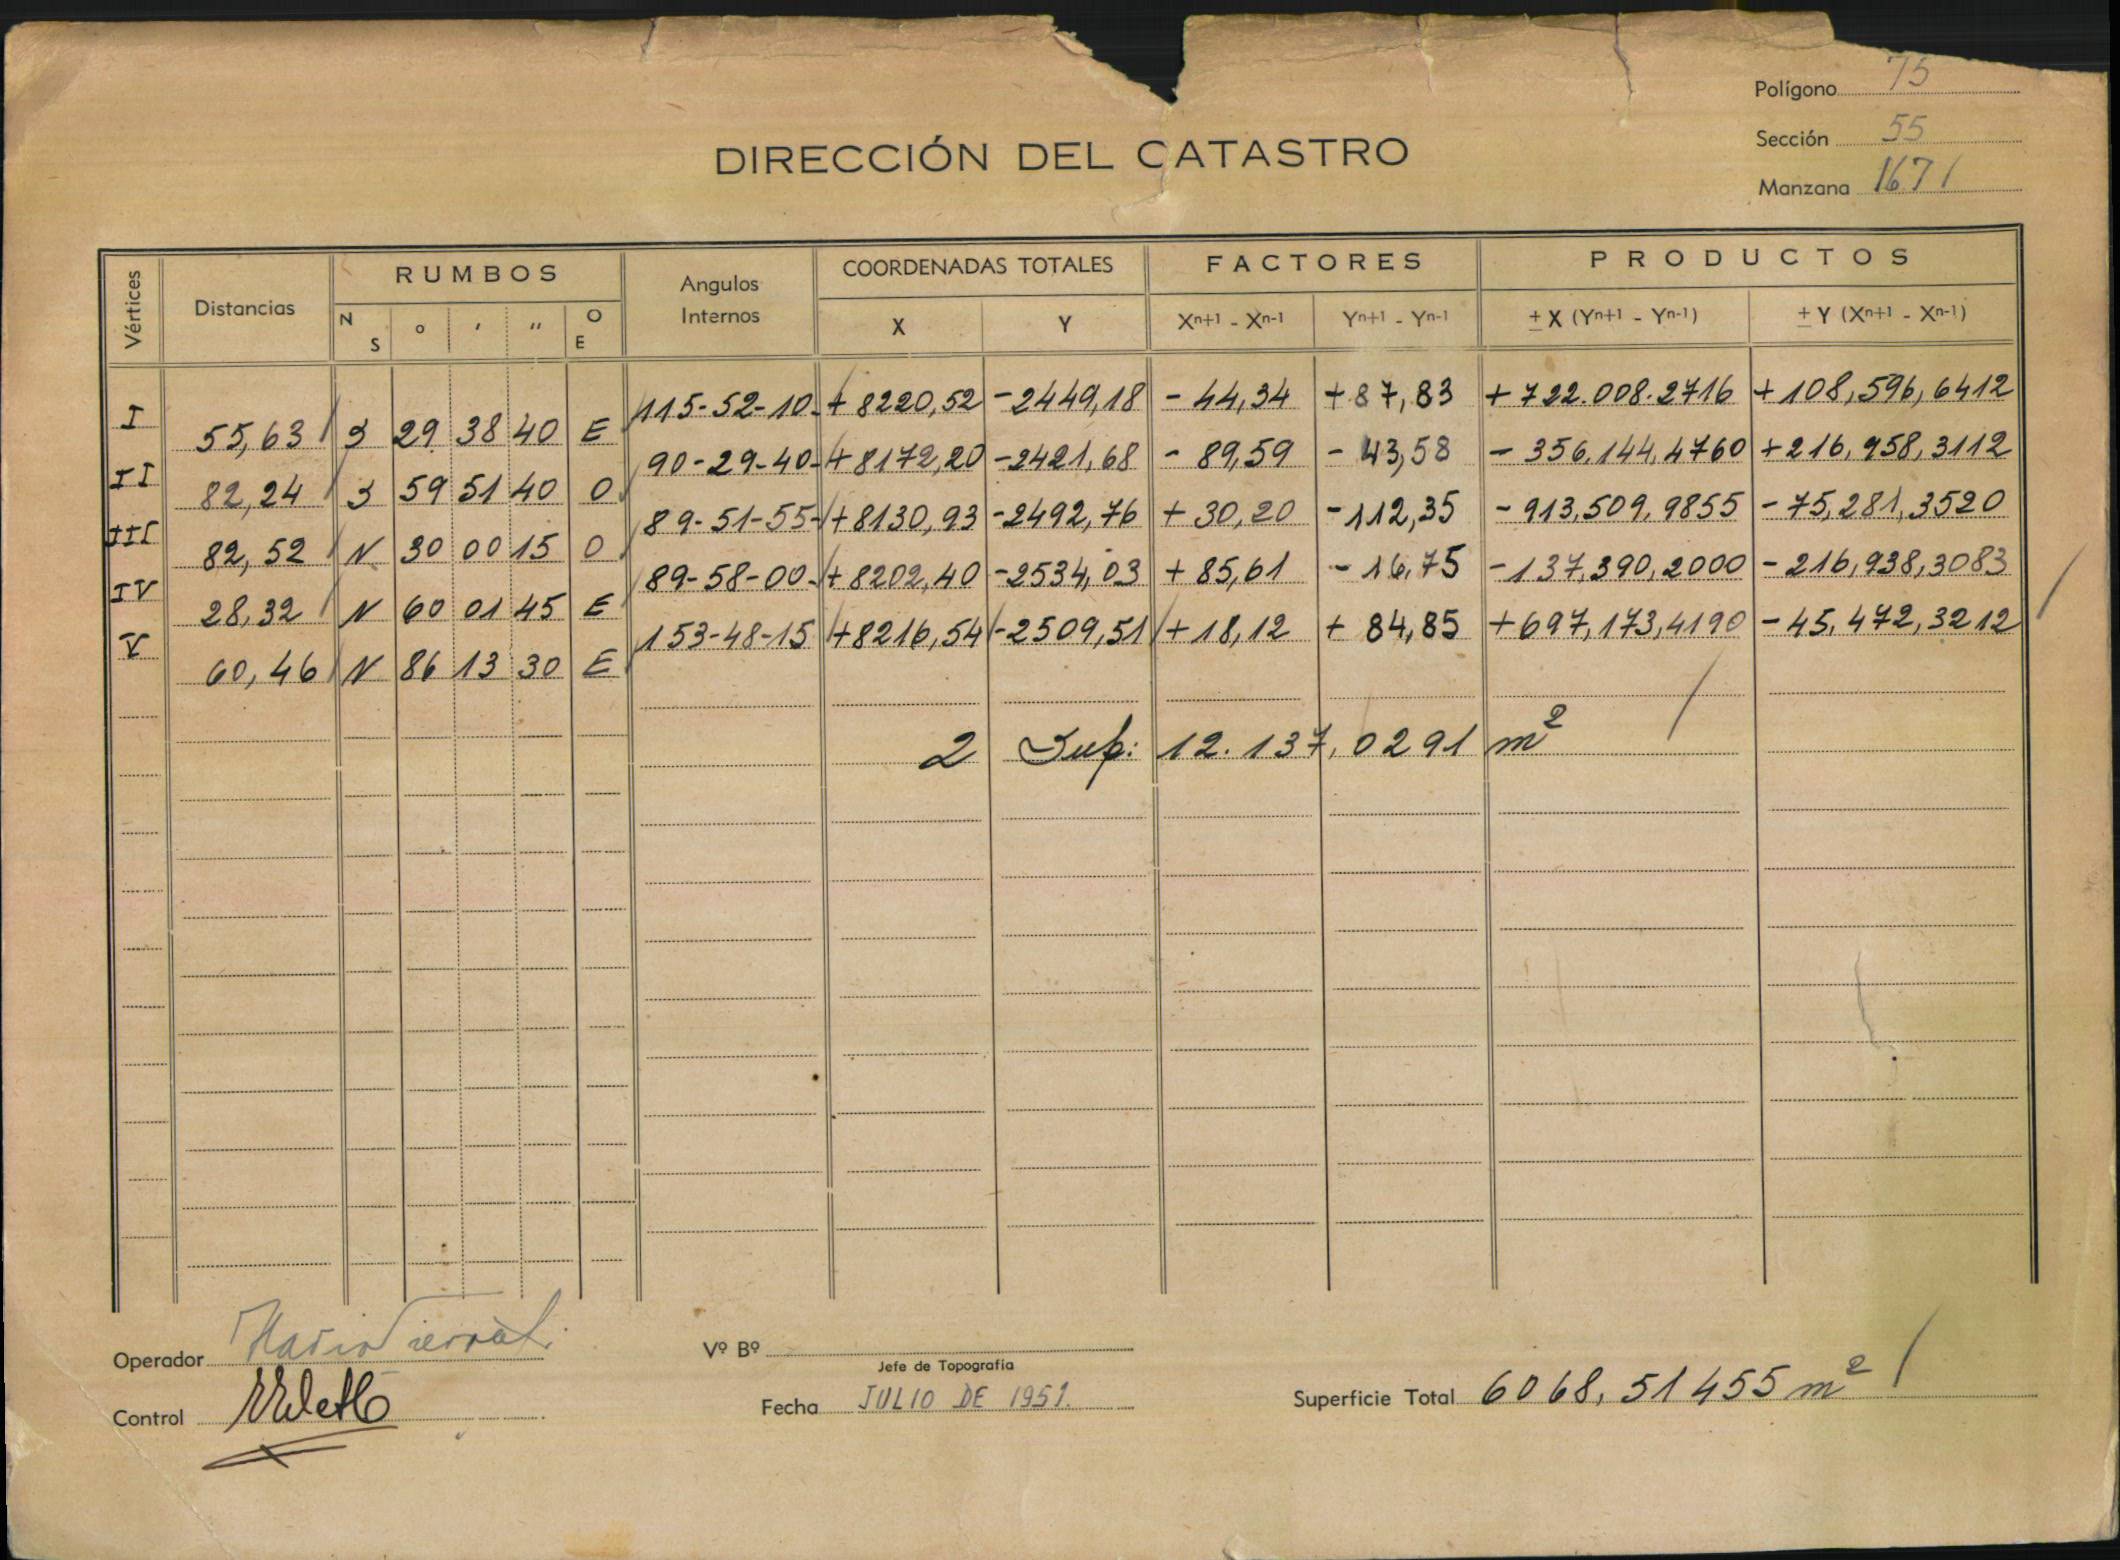 Polígono 75
Sección 55
Manzana 1671
DIRECCIÓN DEL CATASTRO
Vértices Distancias RUMBOS Angulos Internos COORDENADAS TOTALES FACTORES PRODUCTOS
N S ° ' '' O E X Y Xn+1 - Xn-1 Yn+1 - Yn-1 ± X (Yn+1 - Yn-1) ± Y (Xn+1 - Xn-1)
I 115-52-10 + 8220,52 -2449,18 - 44,34 + 87,83 + 722.008.2716 + 108,596,6412
55,63 S 29 38 40 E
II 90-29-40 + 8172,20 -2421,68 - 89,59 - 43,58 - 356,144,4760 + 216,958,3112
82,24 S 59 51 40 O
III 89-51-55 + 8130,93 -2492,76 + 30,20 -112,35 - 913,509,9855 - 75,281,3520
82,52 N 30 00 15 O
IV 89-58-00 + 8202,40 -2534,03 + 85,61 - 16,75 - 137,390,2000 - 216,938,3083
28,32 N 60 01 45 E
V 153-48-15 + 8216,54 -2509,51 + 18,12 + 84,85 + 697,173,4190 - 45,472,3212
60,46 N 86 13 30 E
2 Sup: 12.137,0291 m2
Operador
Vº Bº
Jefe de Topografía
Control
Fecha JULIO DE 1951.
Superficie Total 6068,51455 m2